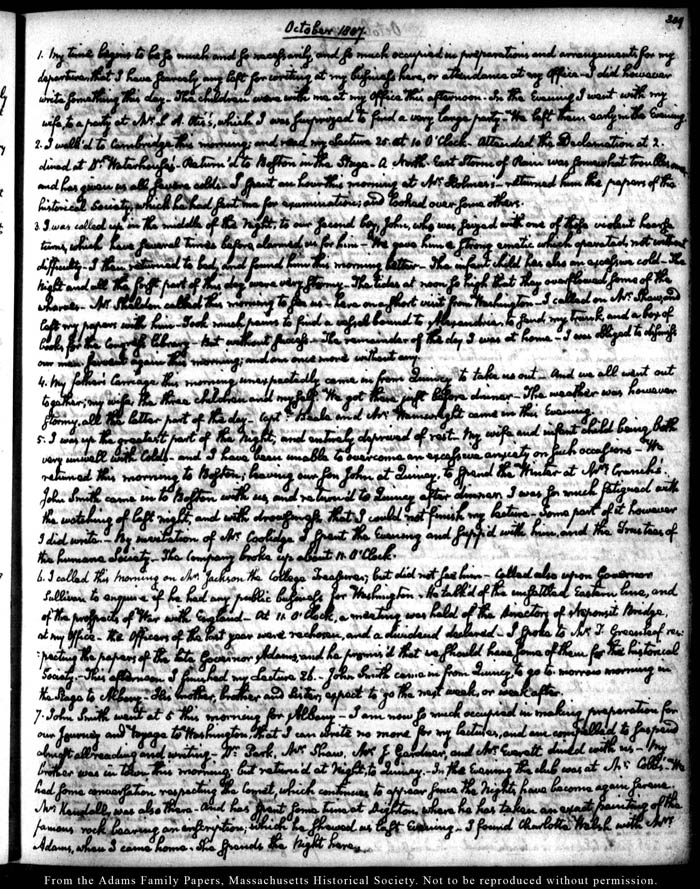 October 1807.
309
1. My time begins to be so much and so necessarily, and so much occupied in preparations and arrangements for my
departure, that I have scarcely any left for writing at my business here, or attendance at my Office. I did however
write something this day. The children were with me at my Office this afternoon. In the Evening I went with my
wife, to a party at Mr. S. A. Otis's, which I was surprized to find a very large party. We left them early in the Evening.
2. I walk'd to Cambridge this morning; and read my Lecture 25. at 10 O'Clock. Attended the Declamation at 2.
dined at Dr. Waterhouse's. Return'd to Boston in the Stage. A North-East Storm of Rain was somewhat troublesome,
and has given us all severe colds. I spent an hour this morning at Mr. Holmes's. returned him the papers of the
historical Society, which he had sent me for examination; and looked over some others.
3. I was called up in the middle of the Night, to our second boy, John, who was seized with one of those violent
turns, which have several times before alarmed us for him. We gave him a strong emetic which operated, not without
difficulty. I then returned to bed, and found him this morning better. The infant child has also an excessive cold. The
Night and all the first part of this day were very stormy. The tides at noon so high that they overflowed some of the
wharves. Mr. Sheldon called this morning to see us. here on a short visit from Washington. I called on Mr. Shaw, and
left my papers with him. Took much pains to find a vessel bound to Alexandria, to send my trunk, and a box of
books for the Congress Library. but without success. The remainder of the day I was at home. I was obliged to dismiss
our man servant again this morning; and am once more without any.
4. My father's Carriage this morning unexpectedly came in from Quincy to take us out. And we all went out
together; my wife, the three children and myself. We got there just before dinner. The weather was however
stormy, all the latter part of the day. Captn. Beale and Mr. Wainwright came in this Evening.
5. I was up the greatest part of the Night, and entirely deprived of rest. My wife and infant child being both
very unwell with Colds. and I have been unable to overcome an excessive anxiety on such occasions. We
returned this morning to Boston; leaving our son John at Quincy, to spend the Winter at Mrs. Cranch's.
John Smith came in to Boston with us, and return'd to Quincy after dinner. I was so much fatigued with
the watching of last night, and with drowsiness, that I could not finish my lecture. Some part of it however
I did write. By invitation of Mr. Coolidge I spent the Evening and supp'd with him, and the Trustees of
the humane Society. The Company broke up about 11. O'Clock.
6. I called this morning on Mr. Jackson the College Treasurer; but did not see him. Called also upon Governor
Sullivan to enquire if he had any public business for Washington. He talk'd of the unsettled Eastern line, and
of the prospects of War with England. At 11. O'Clock, a meeting was held of the Directors of Neponset Bridge,
at my Office. the Officers of the last year were rechosen, and a dividend declared. I spoke to Mr. T. Greenleaf res-
:pecting the papers of the late Governor Adams, and he promis'd that we should have some of them for the historical
Society. This afternoon I finished my Lecture 26. John Smith came in from Quincy, to go to-morrow morning in
the Stage to Albany. His mother, brother and Sister, expect to go the next week, or week after.
7. John Smith went at 6 this morning for Albany. I am now so much occupied in making preparation for
our Journey and Voyage to Washington, that I can write no more for my lectures, and am compelled to suspend
almost all reading and writing. Dr. Park, Mr. Shaw, Mr. J. Gardner, and Mr. Everett dined with us. My
brother was in town this morning; but return'd at Night, to Quincy. In the Evening the club was at Mr. Cobb's. We
had some conversation respecting the Comet, which continues to appear since the Nights have become again serene.
Mr. Kendall, was also there. And has spent some time at Dighton, where he has taken an exact painting of the
famous rock bearing an inscription; which he shewed us last Evening. I found Charlotte Welsh with Mrs.
Adams, when I came home. She spends the Night here.
From the Adams Family Papers, Massachusetts Historical Society. Not to be reproduced without permission.